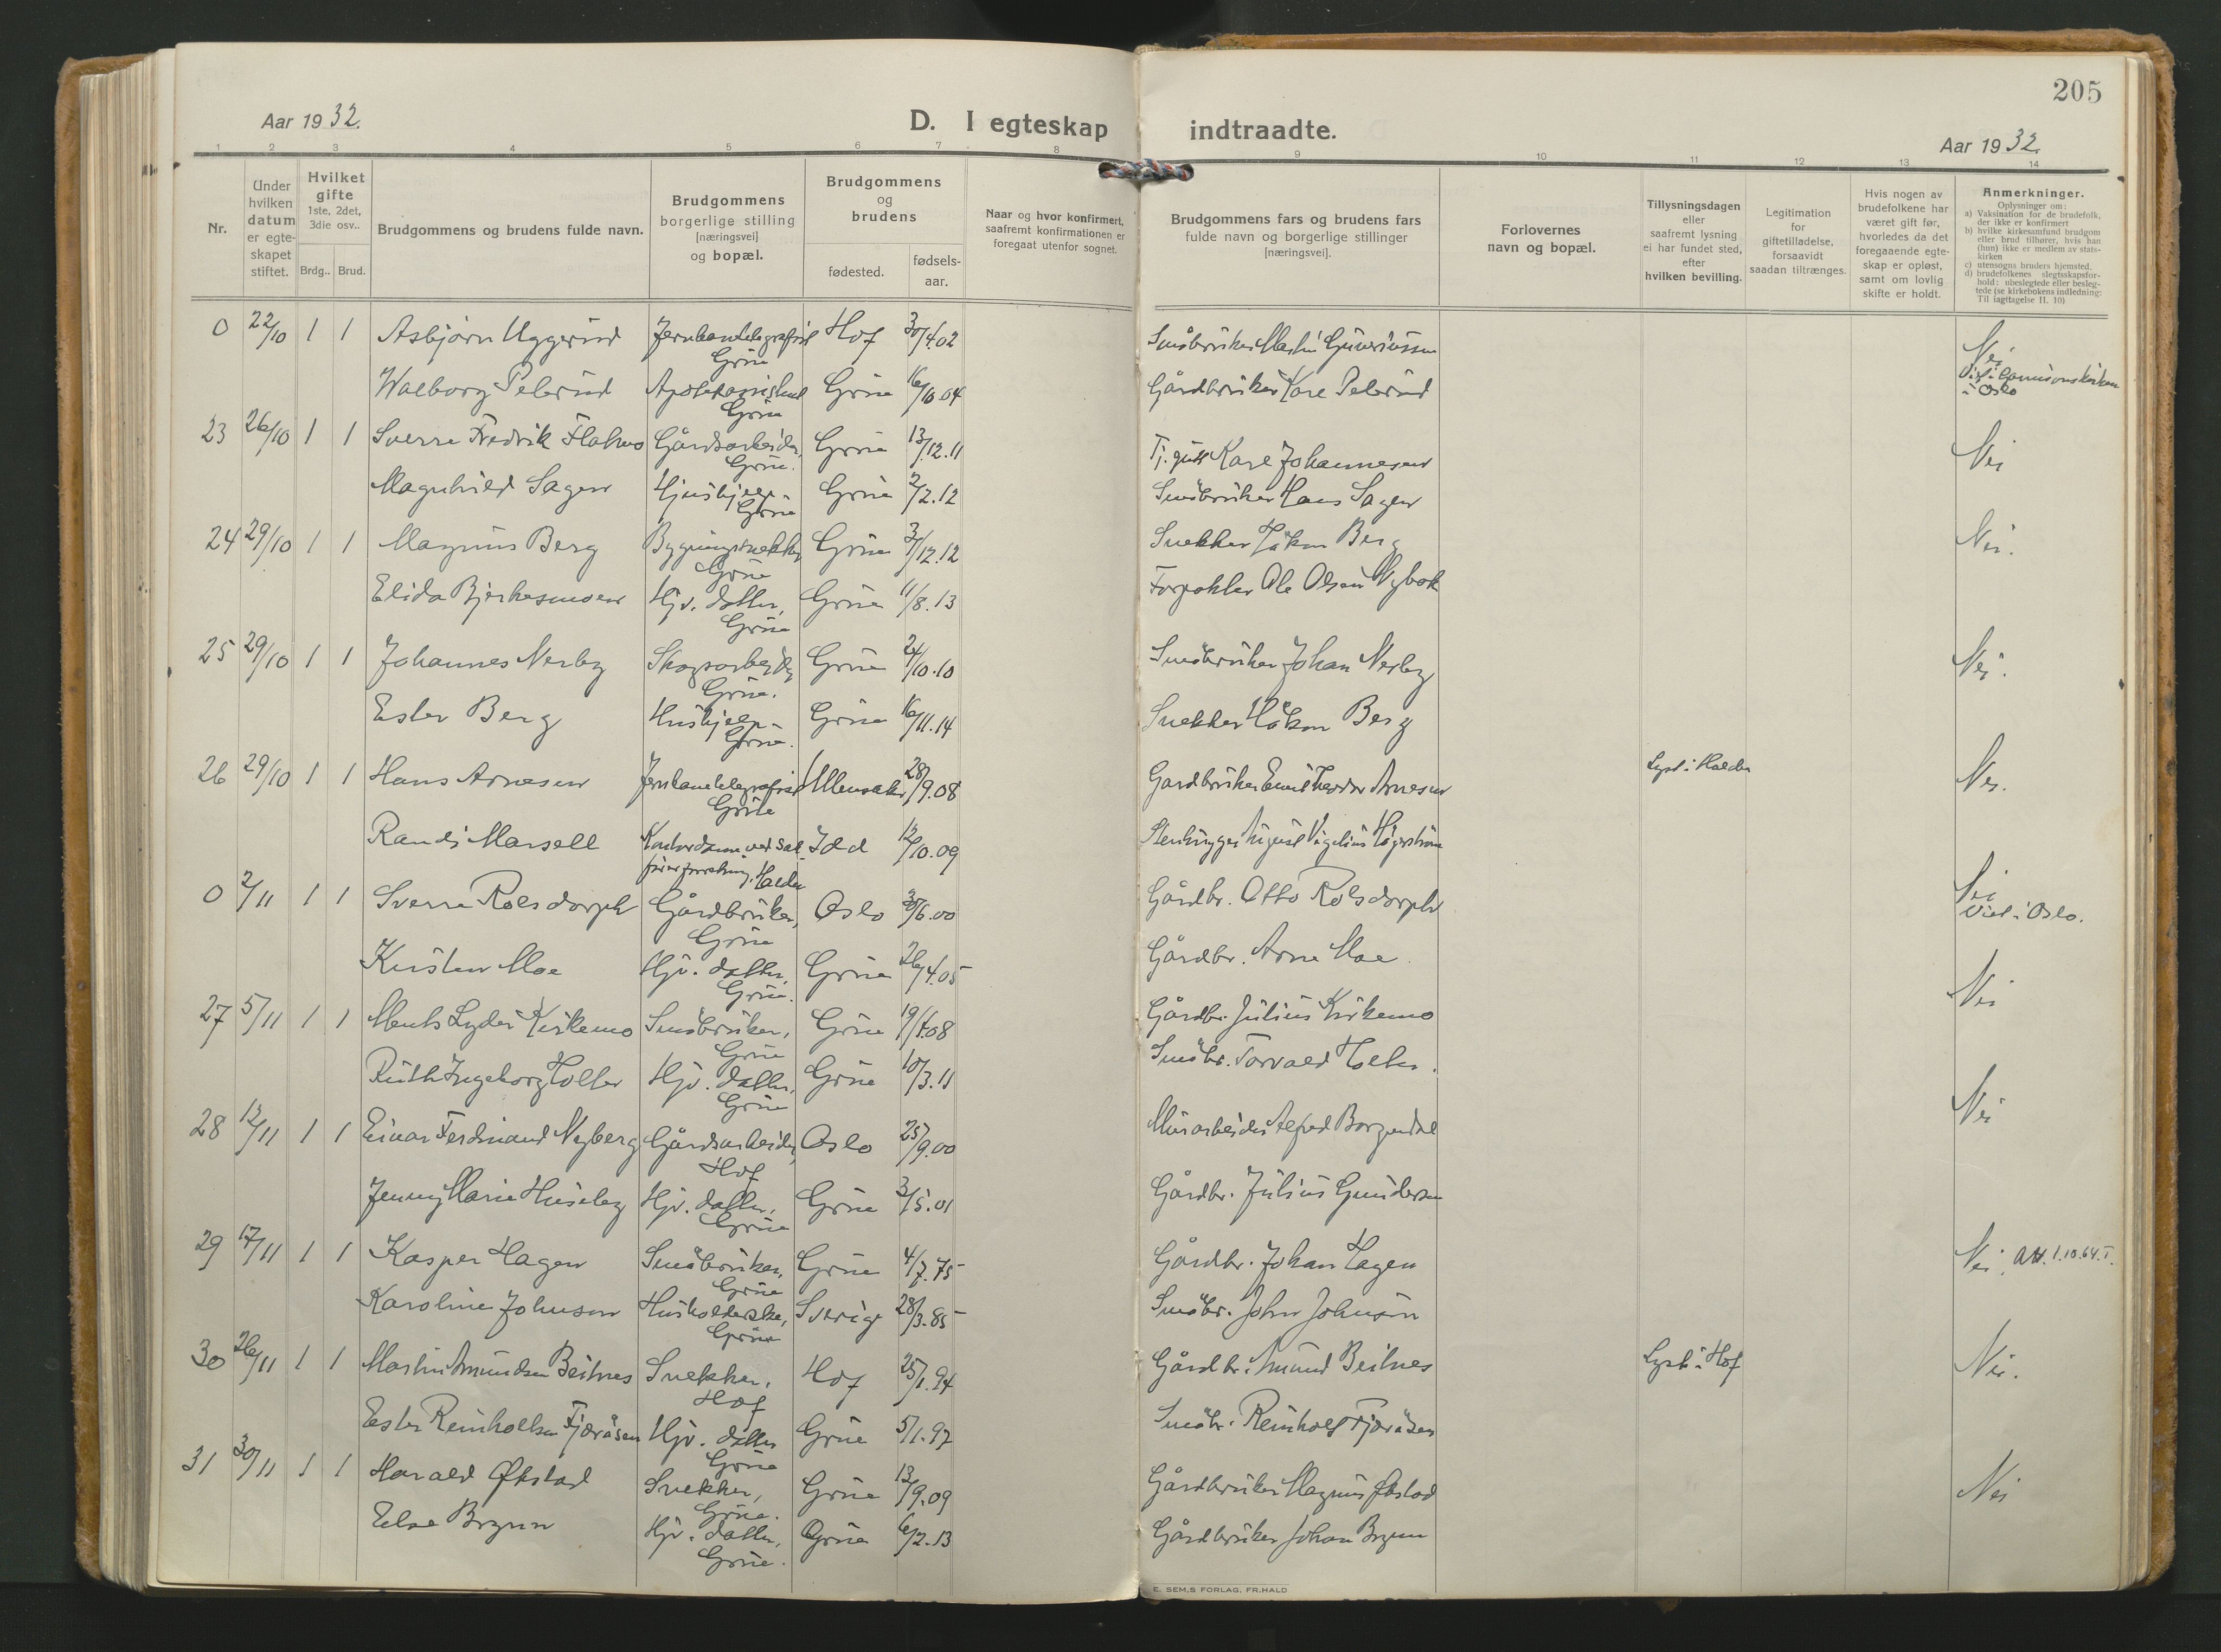 205
Aar 1932.
D. I egteskap indtraadte.
Aar 1932.
1 2 3 4 5 6 7 8 9 10 11 12 13 14
Nr.
Under hvilken datum er egte-skapet stiftet.
Hvilket gifte
1ste, 2det, 3die osv..
Brdg.. Brud.
Brudgommens og brudens fulde navn.
Brudgommens borgerlige stilling [næringsvei] og bopæl.
Brudgommens og brudens
fødested.
fødsels-aar.
Naar og hvor konfirmert, saafremt konfirmationen er foregaat utenfor sognet.
Brudgommens fars og brudens fars fulde navn og borgerlige stillinger [næringsvei].
Forlovernes navn og bopæl.
Tillysningsdagen eller saafremt lysning ei har fundet sted, efter hvilken bevilling.
Legitimation for giftetilladelse, forsaavidt saadan tiltrænges.
Hvis nogen av brudefolkene har været gift før, hvorledes da det foregaaende egte-skap er opløst, samt om lovlig skifte er holdt.
Anmerkninger.
Oplysninger om:
a) Vaksination for de brudefolk, der ikke er konfirmert
b) hvilke kirkesamfund brudgom eller brud tilhører, hvis han (hun) ikke er medlem av stats-kirken
c) utensogns bruders hjemsted.
d) brudefolkenes slegtsskapsfor-hold: ubeslegtede eller besleg-tede (se kirkebokens indledning: Til iagttagelse II. 10)
0 22/10 1 1 Asbjørn Uggerud Jernbanetelegrafist Grue Hof 30/4.02 Småbruker Martin Guneriussen Nei
Valborg Pelerud Grue Grue 16/10 04 Gårdbruker Kore Pelerud Garnisonskirken i Oslo
23 26/10 1 1 Sverre Fredrik Flatmo Gårdsarbeider, Grue. Grue 13/12.11 Karl Johannesen Nei
Magnhild Sagen Hushjelp - Grue Grue 2/2.12 Småbruker Hans Sagen
24 29/10 1 1 Magnus Berg Bygningssnekker Grue Grue 3/12.12 Snekker Håkon Berg Nei.
Elida Bjerkesmoen Hjv. datter, Grue Grue 11/8.13 Forpakter Ole Olsen Nybak
25 29/10 1 1 Johannes Nerby Skogsarbeider Grue. Grue 24/10.10 Småbruker Johan Nerby Nei.
Ester Berg Hushjelp - Grue. Grue 16/11.14 Snekker Håkon Berg
26 29/10 1 1 Hans Arnesen Jernbanetelegrafist Grue Ullensaker 28/9.08 Gardbruker Emil Theodor Arnesen Lyst i Halden Nei.
Randi Marsell Kontordame ved Halden Idd 12/10.09 Stenhugger August Vigelius Hägerström
0 2/11 1 1 Sverre Rolsdorph Gårdbruker, Grue Oslo 30/6.00 Gårdbr. Otto Rolsdorph Nei Viet i Oslo.
Kirsten Moe Hjv. datter, Grue. Grue 26/4.05 Gårdbr. Arne Moe.
27 5/11 1 1 Kirkemo Småbruker, Grue Grue 19/4.08 Gårdbr. Julius Kirkemo Nei
Ruth Ingeborg Holter Hjv. datter, Grue Grue 10/3.11 Småbr. Torvald Holter.
28 12/11 1 1 Einar Ferdinand Nyberg Gårdsarbeider, Hof Oslo 25/9.00 Murarbeider Alfred Borgendal Nei
Jenny Marie Huseby Hjv. datter, Grue Grue 3/5.01 Gårdbr. Julius Gundersen
29 17/11 1 1 Kasper Hagen Småbruker, Grue Grue 4/7.75 Gårdbr. Johan Hagen Nei. att. 1.10.64.
Karoline Johnson Husholderske, Grue Sverige 28/3.85 Småbr. John Johnson
30 26/11 1 1 Martin Amundsen Beitnes Snekker, Hof Hof 25/1.94 Gårdbr. Amund Beitnes Lyst i Hof Nei.
Ester Reinholtsen Fjøråsen Hjv. datter Grue Grue 5/1.97 Småbr. Reinholt Fjøråsen
31 30/11 1 1 Harald Økstad Snekker, Grue. Grue 13/9.09 Gårdbruker Magnus Økstad Nei
Else Brynn Hjv. datter, Grue. Grue 6/2.13 Gårdbruker Johan Brynn
E. SEM,S FORLAG, FR.HALD